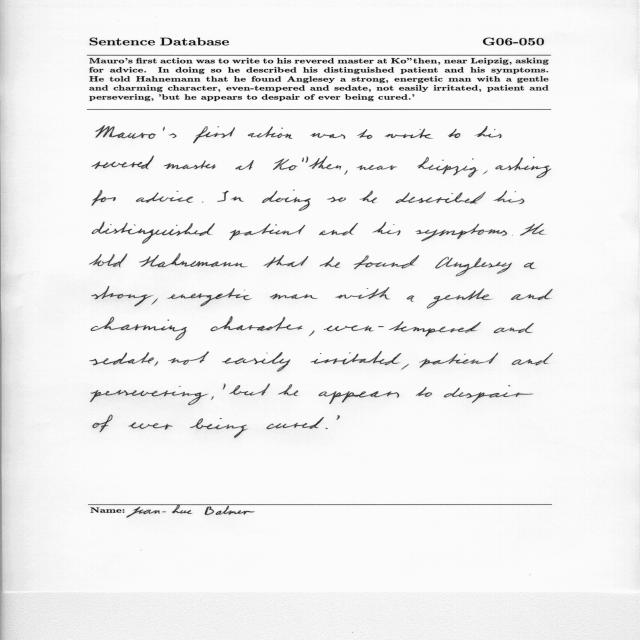 Sentence Database G06-050
Mauro's first action was to write to his revered master at Ko"then, near Leipzig, asking
for advice. In doing so he described his distinguished patient and his symptoms.
He told Hahnemann that he found Anglesey a strong, energetic man with a gentle
and charming character, even-tempered and sedate, not easily irritated, patient and
persevering, 'but he appears to despair of ever being cured.'
Mauro's first action was to write to his
revered master at Ko"then, near Leipzig, asking
for advice. In doing so he described his
distinguished patient and his symptoms. He
told Hahnemann that he found Anglesey a
strong, energetic man with a gentle and
charming character, even-tempered and
sedate, not easily irritated, patient and
persevering, 'but he appears to despair
of ever being cured.'
Name: Jean-Luc Balmer